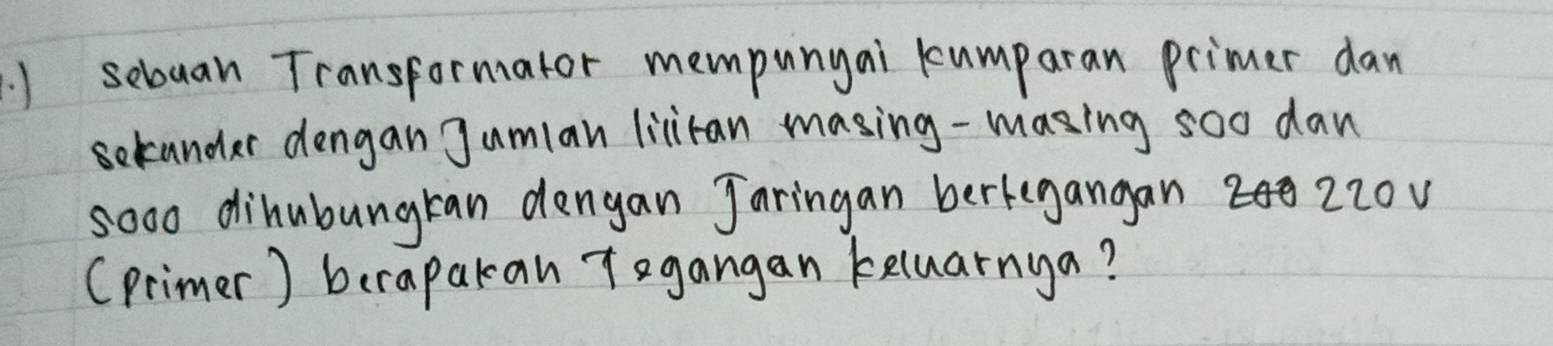 1.) sebuah Transformator mempunyai kumparan primer dan
sekunder dengan Jumlah lilitan masing-masing 500 dan
5000 dihubungkan dengan Jaringan bertegangan 200 220 V
(primer) berapakah Tegangan keluarnya?